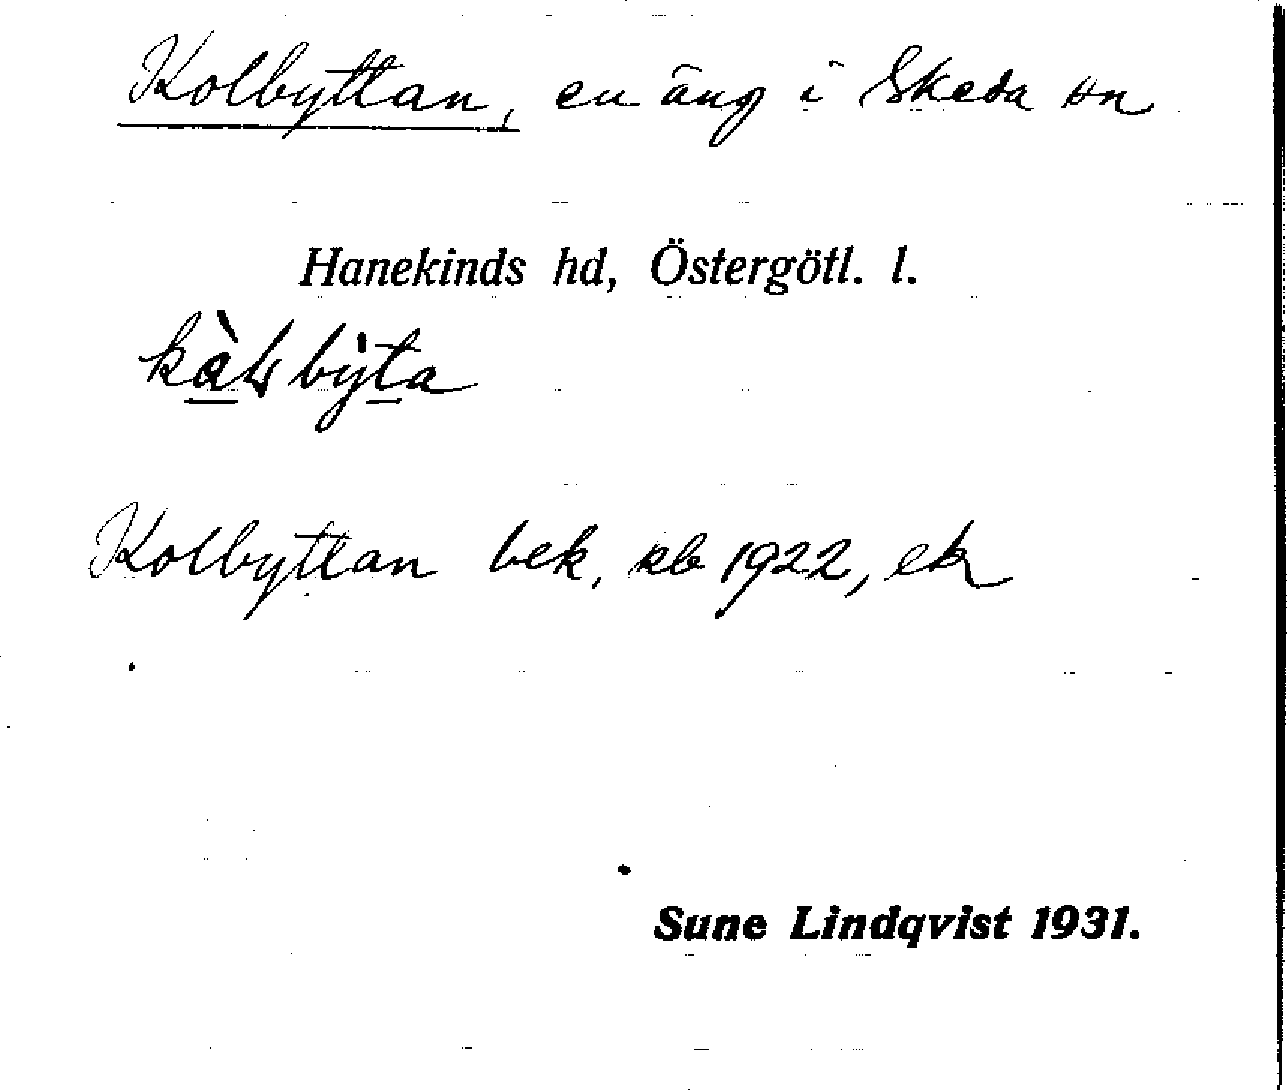 Kolbyttan, en äng i Skeda sn
Hanekinds hd, Östergötl. l.
Kolbyttan bek, kb 1922, ek
Sune Lindqvist 1931.